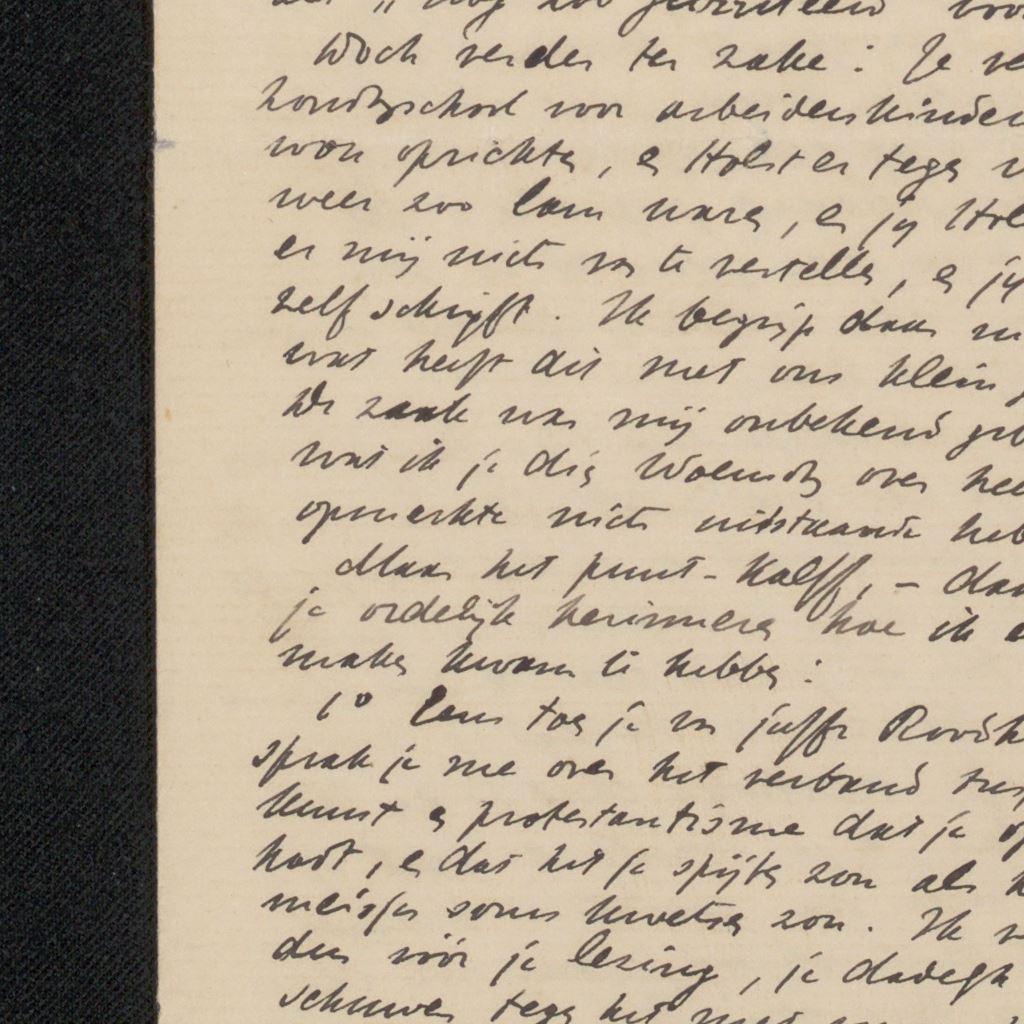 nog zoo
Doch verder ter zake: Je ve
kondigschool voor arbeiderskinder
wou oprichten, en Holst er tegen
weer zoo lam waren, en jij Hol
er mij niets van te vertellen, en jij
zelf schrijft. Ik begrijp daar
wat heeft dit met ons klein
De zaak was mij onbekend geb
wat ik je dien Woensdag over
opmerkte niets uitstaande heb
Maar het punt-Kalff, — daa
je ordelijk herinneren hoe ik
maken kwam te hebben:
1° Eens toen je van juffr Rovik
sprak je me over het verband tus
kunst en protestantisme dat je op
hadt, en dat het je spijten zou als
meisjes soms kwetsen zou. Ik
den vóór je lezing, je dadelijk
schuwen tegen het